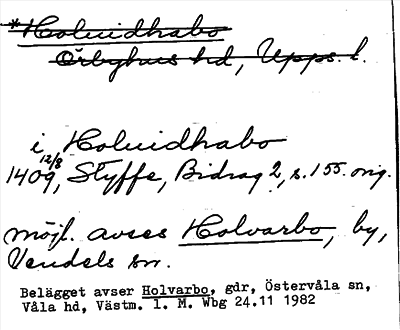 *Holuidhabo
Örbyhus hd, Upps. l.
i Holuidhabo
12/8
1409, Styffe, Bidrag 2, s. 155. orig.
möjl. avses Holvarbo, by,
Vendels sn.
Belägget avser Holvarbo, gdr, Östervåla sn,
Våla hd, Västm. l. M. Wbg 24.11 1982